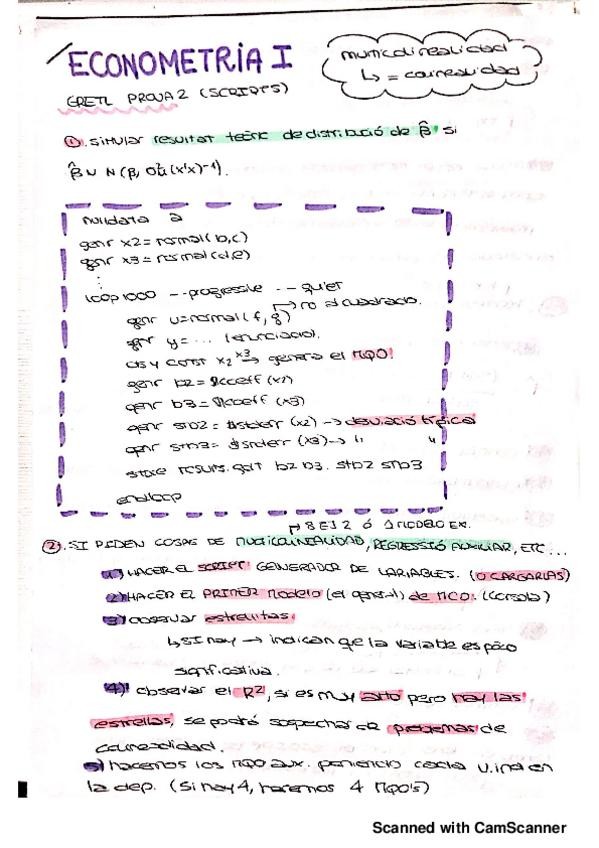 ECONOMETRIA I
multicolinealidad
↳ = colinealidad
GRETL PROVA 2 (SCRIPTS)
① . simular resultat teòric de distribució de β̂ si
β̂ ∪ N (β, σ²u (x'x)⁻¹).
nulldata a
genr x2 = normal(b,c)
genr x3 = normal(d,e)
:
loop 1000 --progressive --quiet
→ no al cuadrado.
genr u=normal(f, g)
genr y = ... (enunciado).
ols y const x2 x3 → genera el MQO!
genr b2 = $coeff (x2)
genr b3 = $coeff (x3)
genr stb2 = $stderr (x2) → desviació típica
genr stb3 = $stderr (x3) → " "
store results.gdt b2 b3 stb2 stb3
endloop
② . SI PIDEN COSAS DE MULTICOLINEALIDAD, REGRESSIÓ AUXILIAR, ETC ...
1) HACER EL SCRIPT GENERADOR DE VARIABLES. (O CARGARLAS)
2) HACER EL PRIMER MODELO (el general) de MCO. (Consola)
3) observar estrellitas:
↳ SI hay → indican que la variable es poco
significativa.
4) observar el R², si es muy alto pero hay las
estrellas, se podrá sospechar de problemas de
colinealidad.
5) hacemos los MQO aux. poniendo cada v.ind en
la dep. (si hay 4, haremos 4 MQO's)
Scanned with CamScanner